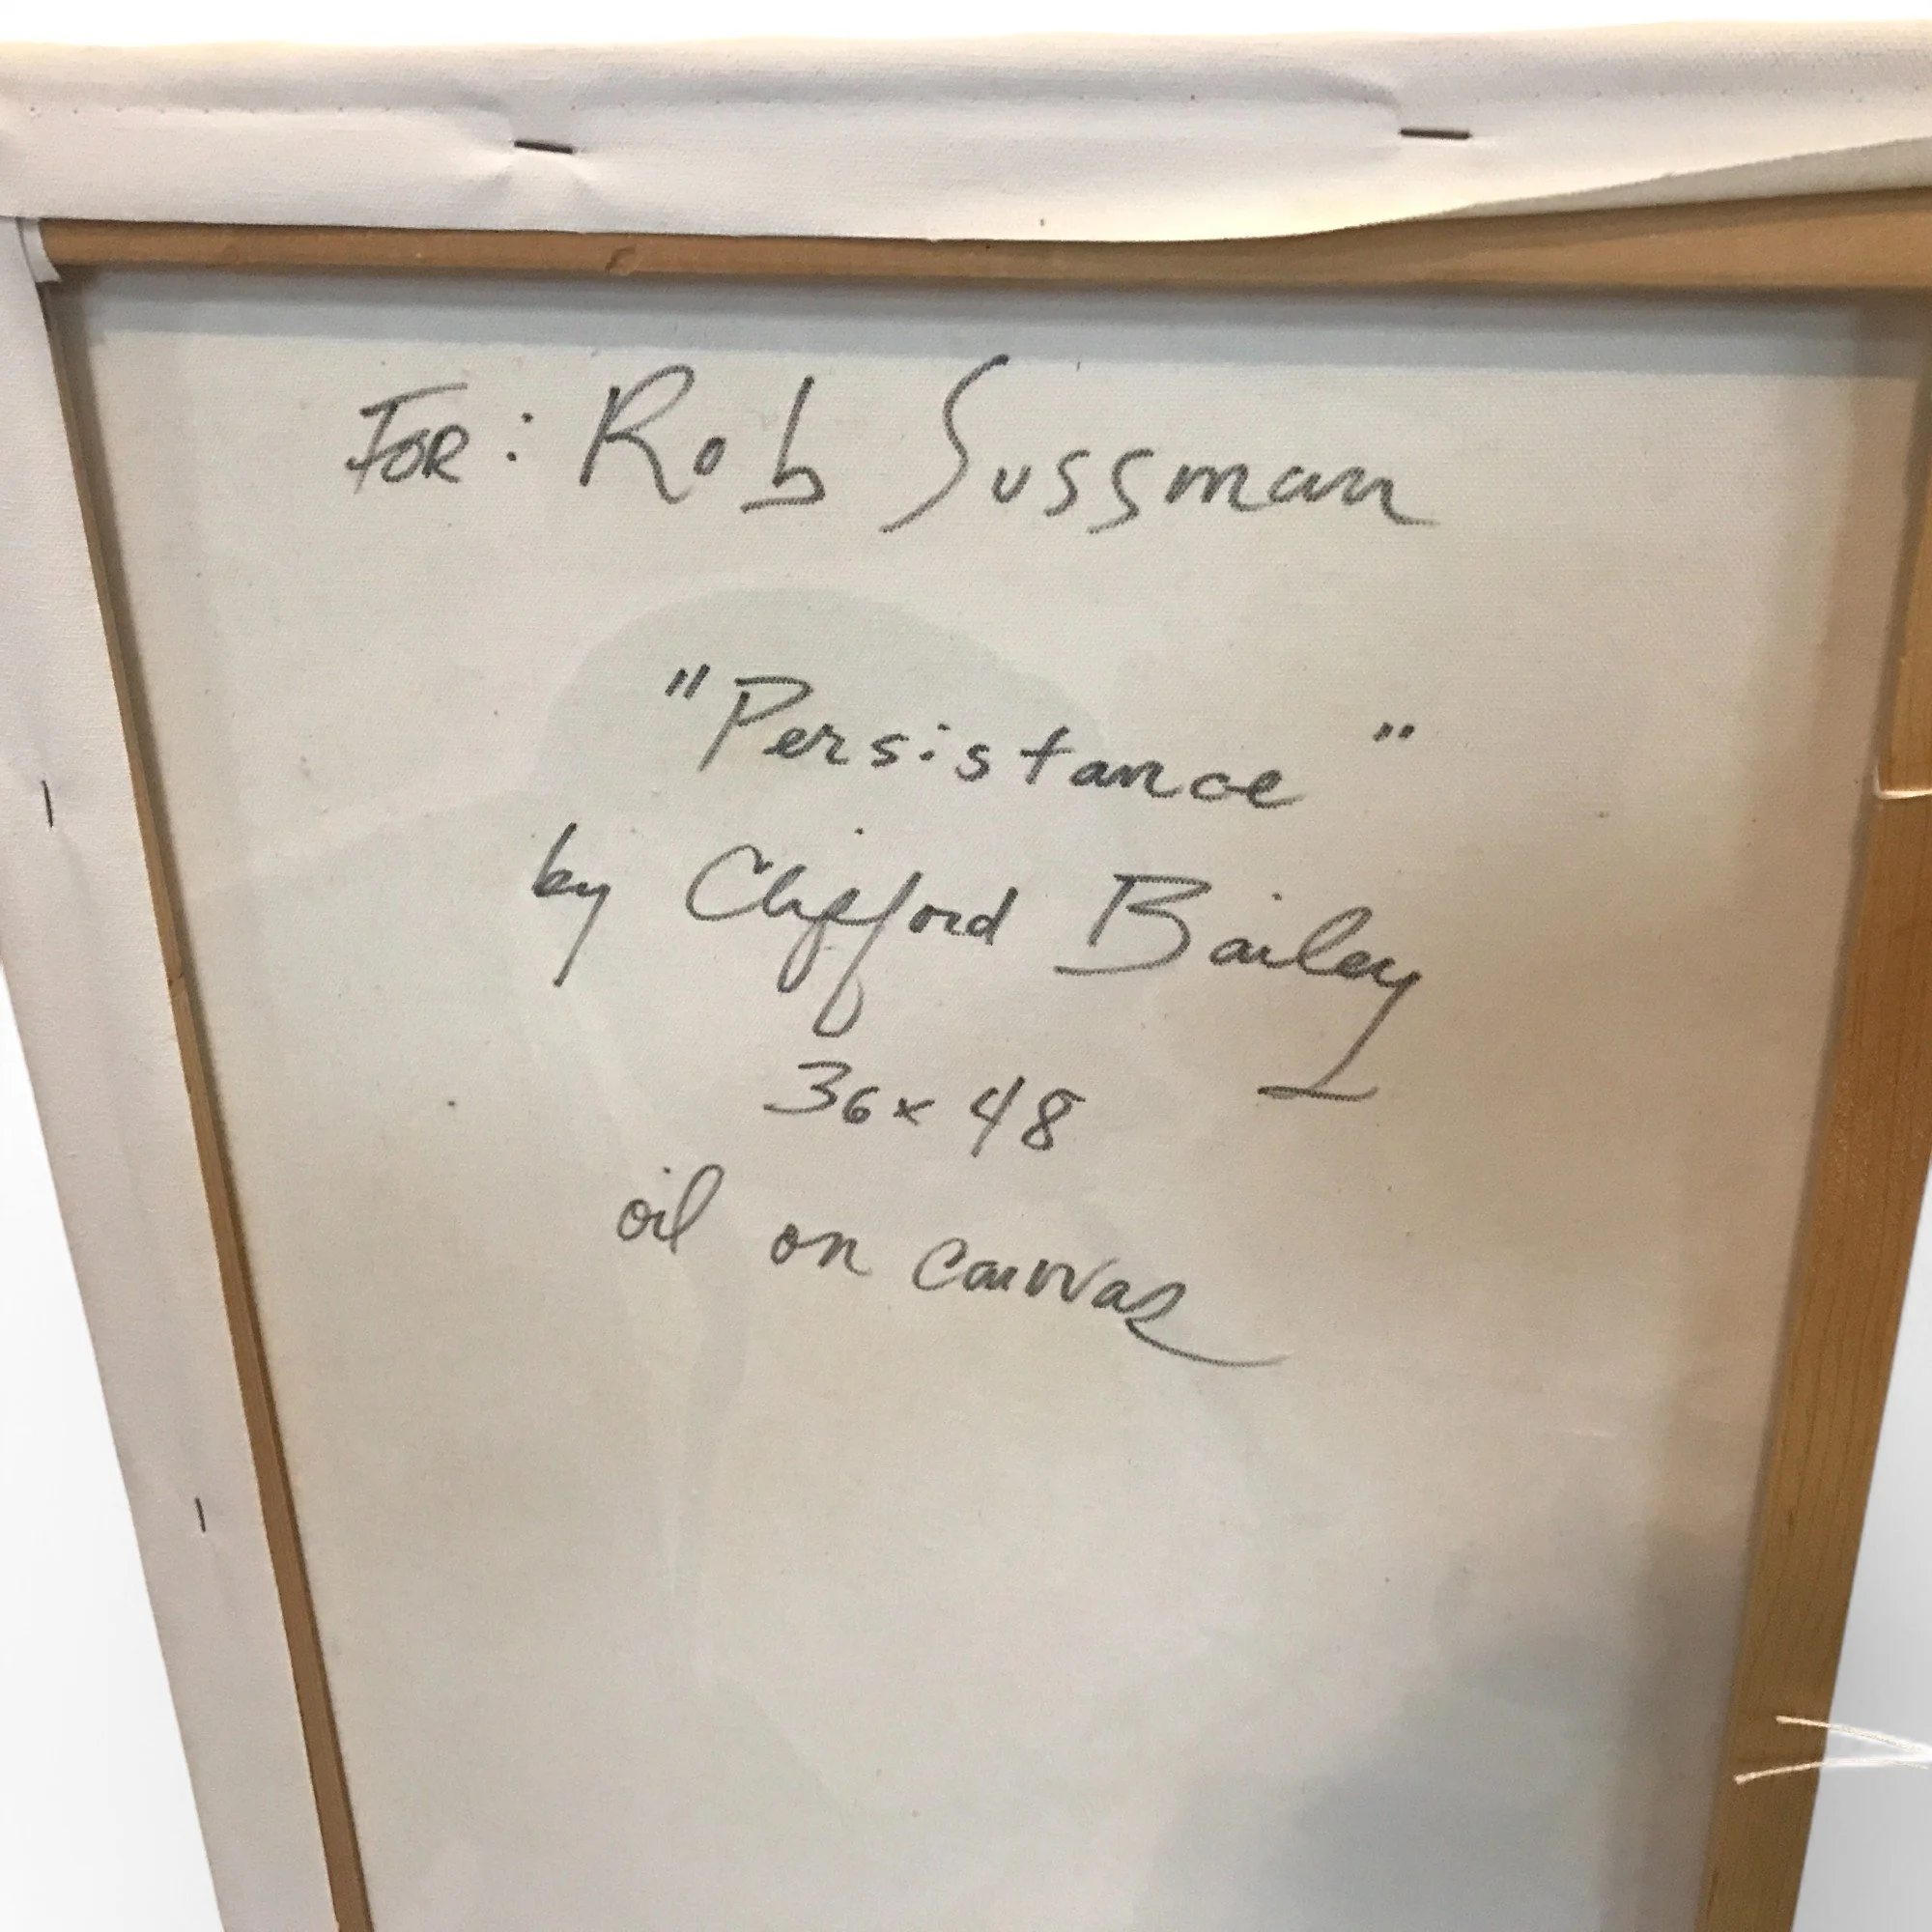 FOR: Rob Sussman
"Persistance"
by Clifford Bailey
36x48
oil on canvas